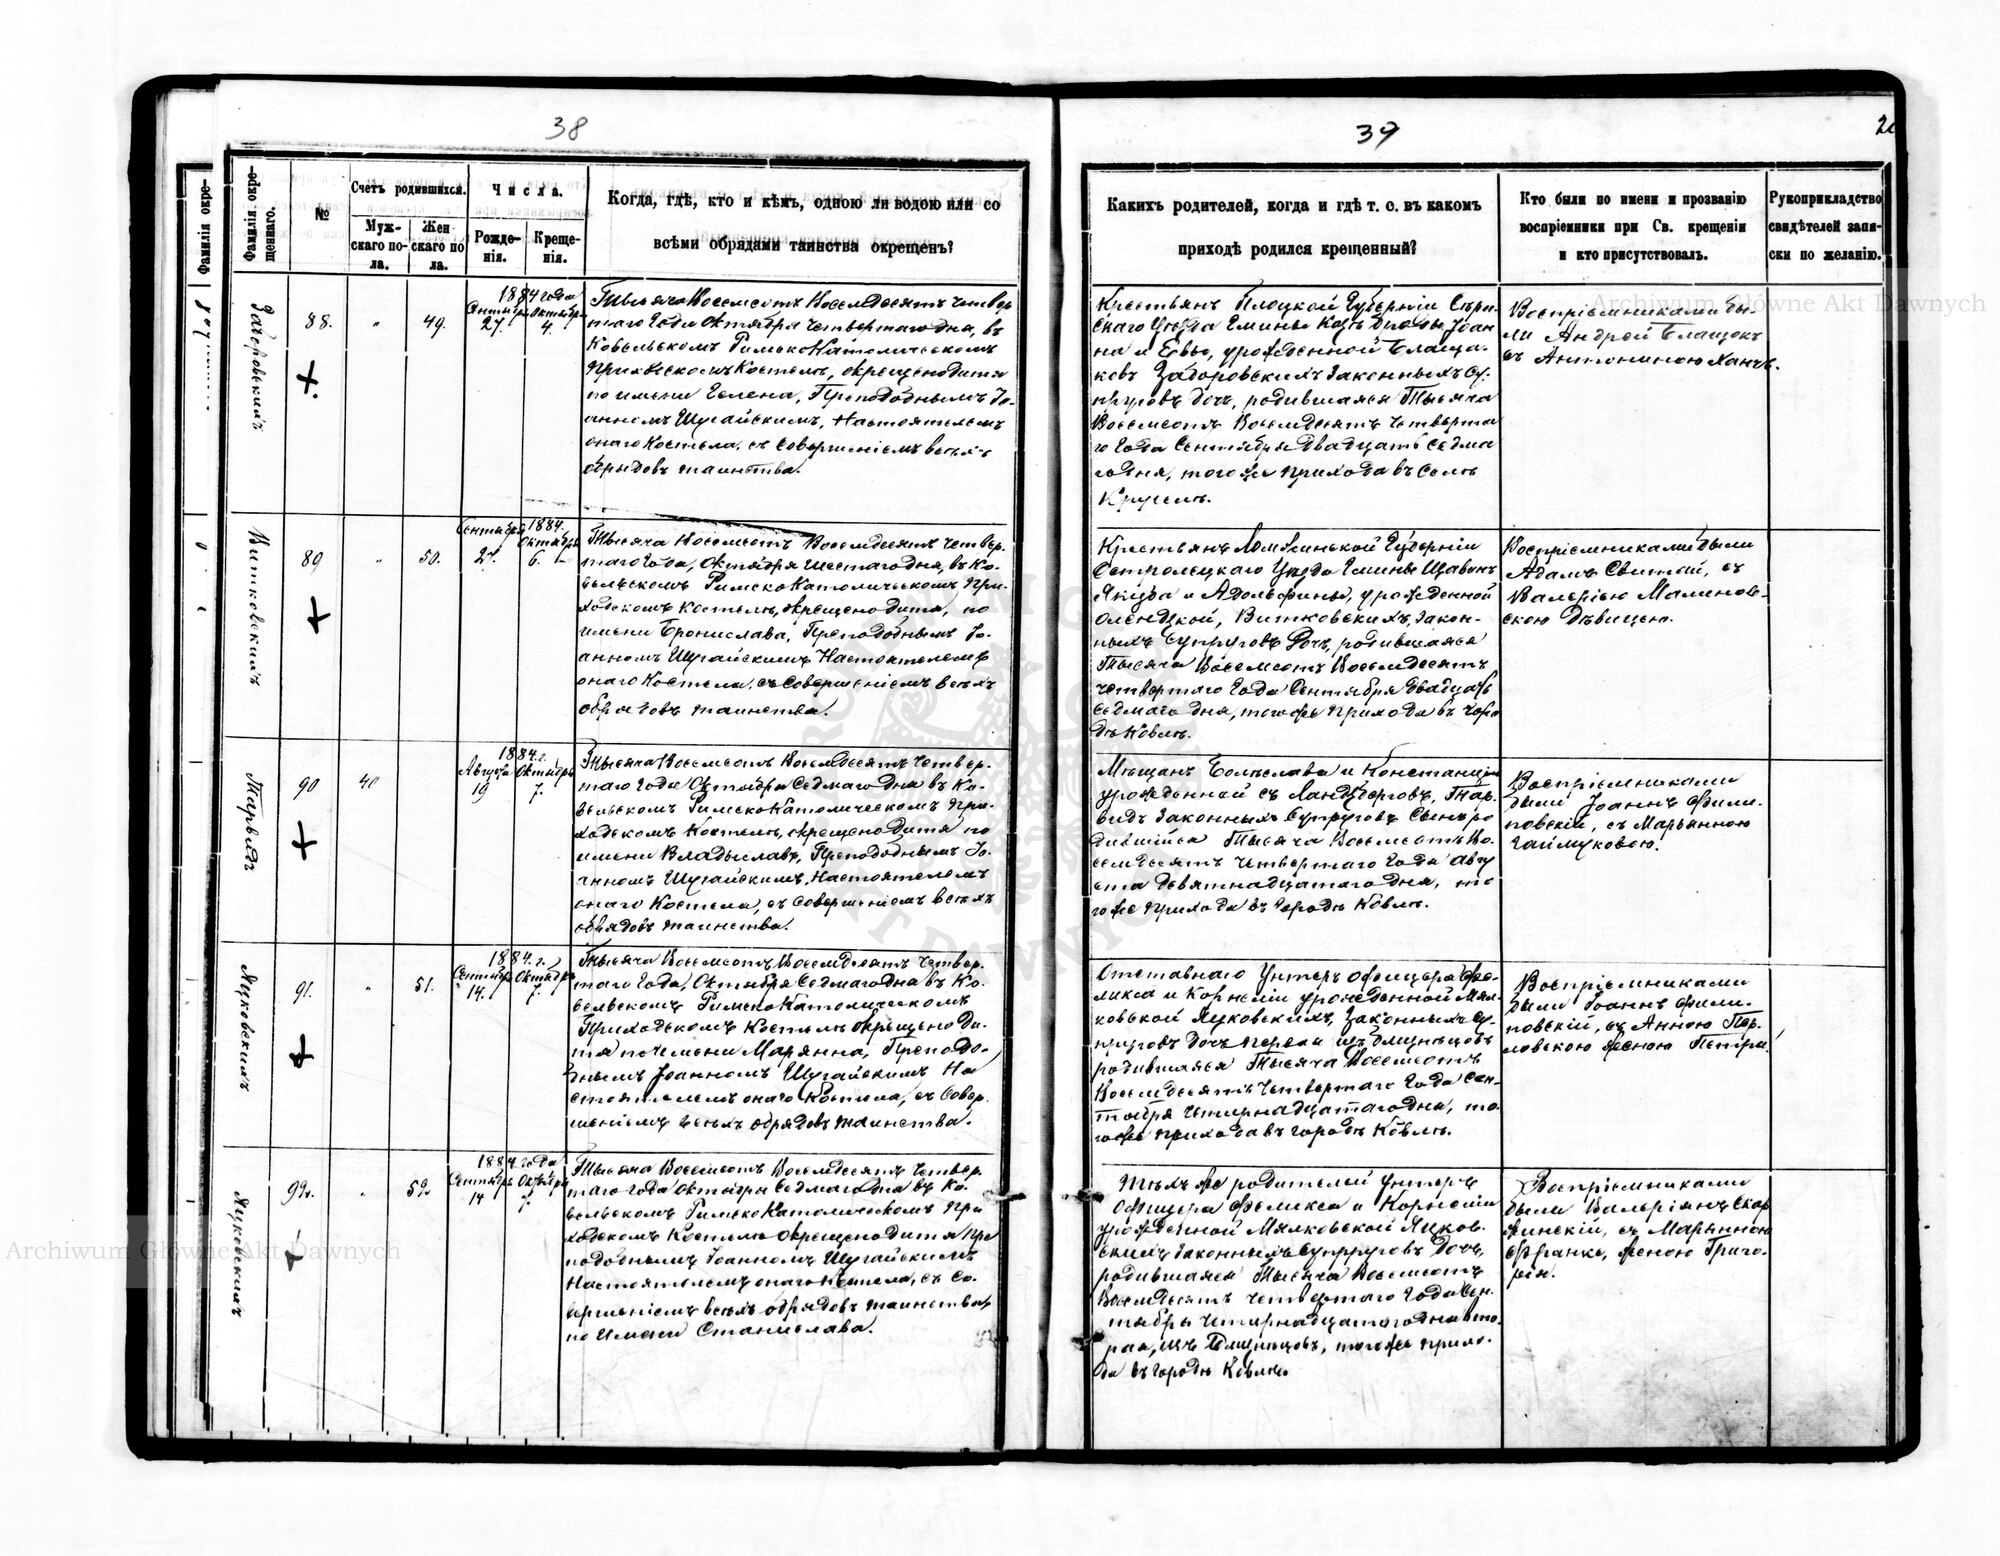 38
Фамилія окре-
Фамилія окре-
щеннаго.
№
Счетъ родившихся.
Муж-
скаго по-
ла.
Жен
скаго по
ла.
Числа.
Рожде-
нія.
Креще-
нія.
Когда, гдѣ, кто и кѣмъ, одною ли водою или со
всѣми обрядами таинства окрещенъ?
Загоровскій
88.
"
49.
1884 года
Сентября
27.
Октября
4.
Тысяча Восемсотъ Восемдесятъ Четвер
таго Года Октября Четвертаго дня, въ
Ковельскомъ РимскоКатолическомъ
Приходскомъ Костелѣ, окрещено дитя
по имени Гелена, Преподобнымъ Іо-
анномъ Шугайскимъ, Настоятелемъ
онаго Костела, съ совершеніемъ всѣхъ
обрядовъ таинства.
Витковскихъ
89
"
50.
1884.
Сентября
27.
Октября
6.
Тысяча Восемсотъ Восемдесятъ Четвер-
таго Года, Октября Шестаго дня, въ Ко-
вельскомъ РимскоКатолическомъ При-
ходскомъ Костелѣ, окрещено дитя, по
имени Бронислава, Преподобнымъ Іо-
анномъ Шугайскимъ Настоятелемъ
онаго Костела, съ совершеніемъ всѣхъ
обрядовъ таинства.
Тарвидъ
90
40
1884 г.
Августа
19
Октября
7.
Тысяча Восемсотъ Восемдесятъ Четвер-
таго Года Октября Седмаго Дня въ Ко-
вельскомъ РимскоКатолическомъ При-
ходскомъ Костелѣ, окрещено дитя по
имени Владыславъ, Преподобнымъ Іо-
анномъ Шугайскимъ, Настоятелемъ
онаго Костела, съ совершеніемъ всѣхъ
обрядовъ таинства.
Яцковскихъ
91.
"
51.
1884. г.
Сентября
14.
Октября
7.
Тысяча Восемсотъ Восемдесятъ Четвер-
таго Года, Октября Седмаго дня въ Ко-
вельскомъ РимскоКатолическомъ
Приходскомъ Костелѣ окрещено Ди-
тя по имени Марянна, Преподо-
бнымъ Іоанномъ Шугайскимъ На
стоятелемъ онаго Костела, съ совер-
шеніемъ всѣхъ обрядовъ таинства.
Яцковскихъ
92.
"
52
1884 года
Сентября
14
Октября
7.
Тысяча Восемсотъ Восемдесятъ Четвер-
таго Года Октября Седмаго Дня въ Ко-
вельскомъ РимскоКатолическомъ При
ходскомъ Костелѣ окрещено дитя Пре
подобнымъ Іоанномъ Шугайскимъ
Настоятелемъ онаго Костела, съ со-
вершеніемъ всѣхъ обрядовъ таинства
по Имени Станислава.
39
Какихъ родителей, когда и гдѣ т. е. въ какомъ
приходѣ родился крещенный?
Кто были по имени и прозванію
воспріемники при Св. крещеніи
и кто присутствовалъ.
Рукоприкладство
свидѣтелей запи-
ски по желанію.
Крестьянъ Плоцкой Губерніи Серп-
скаго Уѣзда Гмины Іоан-
на и Евы, урожденной Блаща-
ковъ Загоровскихъ Законныхъ Су-
пруговъ Дочь, родившаяся Тысяча
Восемсотъ Восемдесятъ Четверта
го Года Сентября Двадцать Седма
го Дня, того же Прихода въ Селѣ
Воспріемниками бы-
ли Андрей Блащокъ
съ Антониною
Крестьянъ Ломжинской Губерніи
Остроленцкаго Уѣзда Гмины Щавинъ
Якуба и Адольфины, урожденной
Олендзкой, Витковскихъ, Закон-
ныхъ Супруговъ Дочь, родившаяся
Тысяча Восемсотъ Восемдесятъ
Четвертаго Года Сентября Двадцать
Седмаго Дня, того же Прихода въ Горо
дѣ Ковлѣ.
Воспріемниками были
Адамъ Свитый, съ
Валеріею Малинов-
скою Дѣвицею.
Мѣщанъ Болеслава и Констанціи
урожденной съ Ландсберговъ, Тар-
видъ Законныхъ Супруговъ Сынъ ро
дившійся Тысяча Восемсотъ Во-
семдесятъ Четвертаго Года Авгу
ста Девятнадцатаго Дня, то
го же Прихода въ Городѣ Ковлѣ.
Воспріемниками
были Іоаннъ Фили-
повскій, съ Марьянною
Отставнаго Унтеръ Офицера Фе-
ликса и Корнеліи урожденной Мял-
ковской Яцковскихъ, Законныхъ Су-
пруговъ Дочь первая изъ близнецовъ
родившаяся Тысяча Восемсотъ
Восемдесятъ Четвертаго Года Сен-
тября Четырнадцатаго Дня, то-
го же Прихода въ Городѣ Ковлѣ.
Воспріемниками
были Іоаннъ Фили-
повскій, съ Анною
женою Петра.
Тѣхъ же родителей Унтеръ
Офицера Феликса и Корнеліи
урожденной Мялковской Яцков-
скихъ Законныхъ Супруговъ Дочь,
родившаяся Тысяча Восемсотъ
Восемдесятъ Четвертаго Года Сен-
тября Четырнадцатаго Дня вто-
рая, изъ Близнецовъ, того же Прихо-
да въ Городѣ Ковлѣ.
Воспріемниками
были Валеріянъ Скар-
жинскій, съ Марьянною
Франке, женою Григо-
рія.
Archiwum Główne Akt Dawnych
Archiwum Główne Akt Dawnych